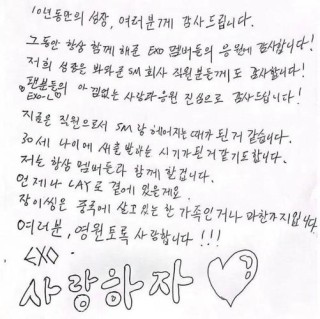 10년동안의 성장, 여러분께 감사드립니다.
그동안 항상 함께 해준 EXO 멤버들의 응원에 감사합니다!
저희 성장은 봐와준 SM 회사 직원분들께도 감사합니다!
팬분들의 아낌없는 사랑과응원 진심으로 감사드립니다!
EXO-L
지금은 직원으로서 SM랑 헤어지는때가 된거 같습니다.
30세 나이에 새출발하는 시기가 된거같기도합니다.
저는 항상 멤버들과 함께 할겁니다.
언제나 LAY로 곁에 있을게요.
장이씽은 중국에 살고있는 한 가족인거나 마찬가지입니다.
여러분, 영원토록 사랑합니다!!!
EXO.
사랑하자